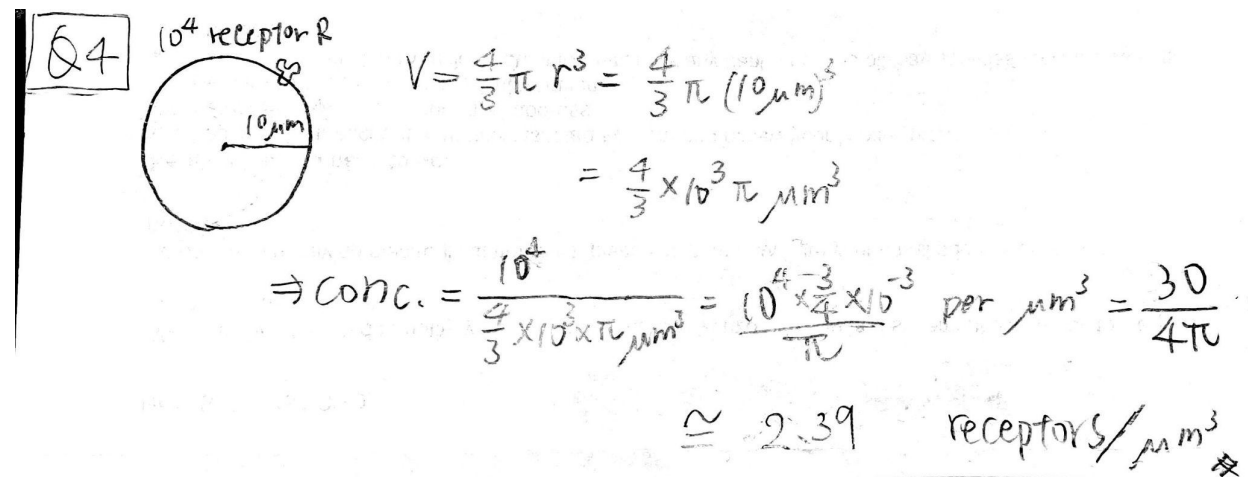 Q4
10⁴ receptor R
10μm
V = 4/3 π r³ = 4/3 π (10μm)³
= 4/3 × 10³ π μm³
⇒ conc. = 10⁴ / (4/3 × 10³ × π μm³) = (10⁴ × 3/4 × 10⁻³) / π per μm³ = 30/4π
≃ 2.39 receptors/μm³